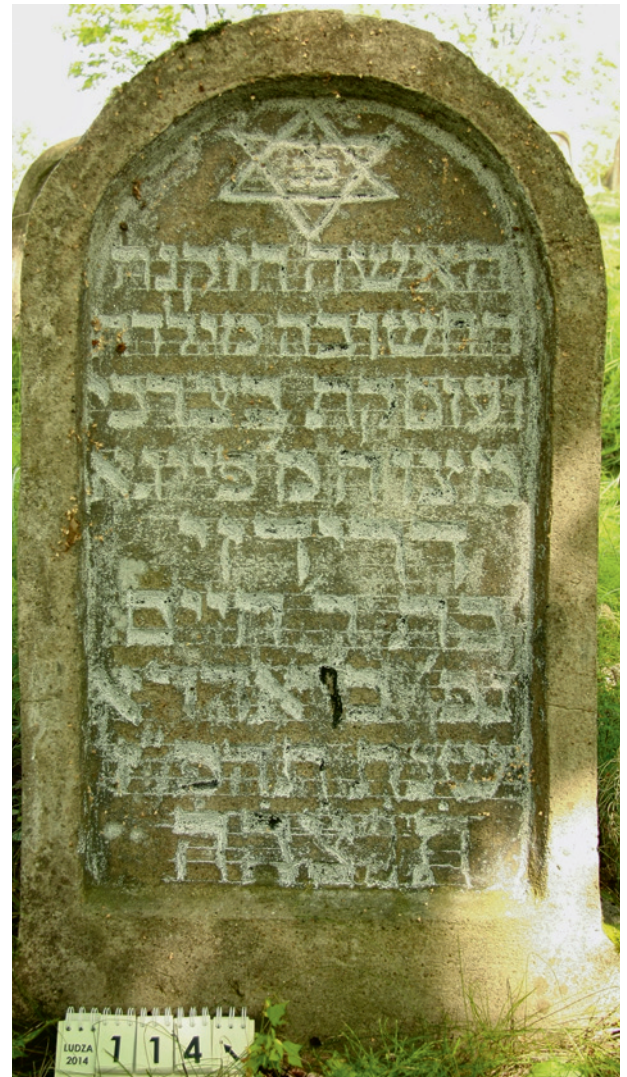 פנ
האשה הזקנה
החשובה
ועוסקת בצרכי
מצוה מ פייגא
בת ר חיים
נפ אדר א
שנת תרפ״ט
ת נ צ ב ה
LUDZA
2014
114